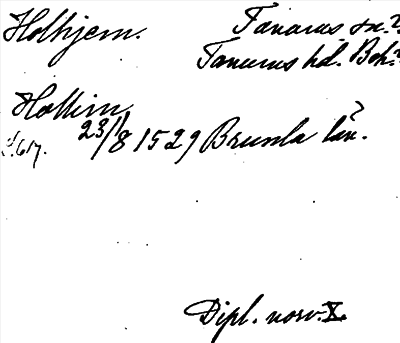 Holhjem. Tanums sn.?
Tanums hd. Boh.?
Hollim,
23/8 1529 Brunla län.
S. 617.
Dipl. norv. X.